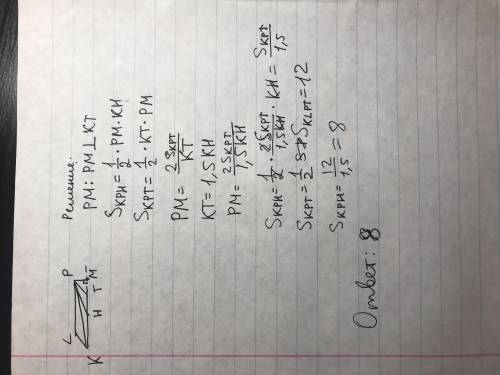 K L P
H T M
Решение:
PM: PM ⊥ KT
S_KPH = 1/2 · PM · KH
S_KPT = 1/2 · KT · PM
PM = 2S_KPT / KT
KT = 1,5 KH
PM = 2S_KPT / 1,5 KH
S_KPH = 1/2 · 2S_KPT / 1,5KH · KH = S_KPT / 1,5
S_KPT = 1/2 S_KLPT = 12
S_KPH = 12 / 1,5 = 8
Ответ: 8